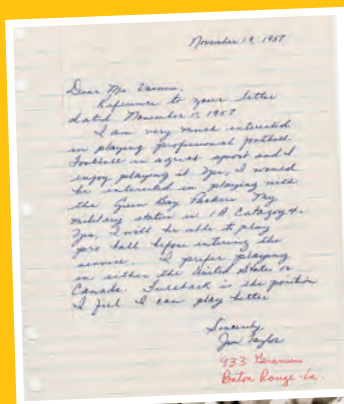 November 19, 1957
Dear Mr. Vainisi.
Reference to your letter
dated November 15, 1957
I am very much interested
in playing professional football.
Football is a great sport and I
enjoy playing it. Yes, I would
be interested in playing with
the Green Bay Packers. My
military status is 1A Catagory 4.
Yes, I will be able to play
pro ball before entering the
service. I prefer playing
in either the United States or
Canada. Fullback is the position
I feel I can play better
Sincerely,
Jim Taylor
933 Geranium
Baton Rouge-La.